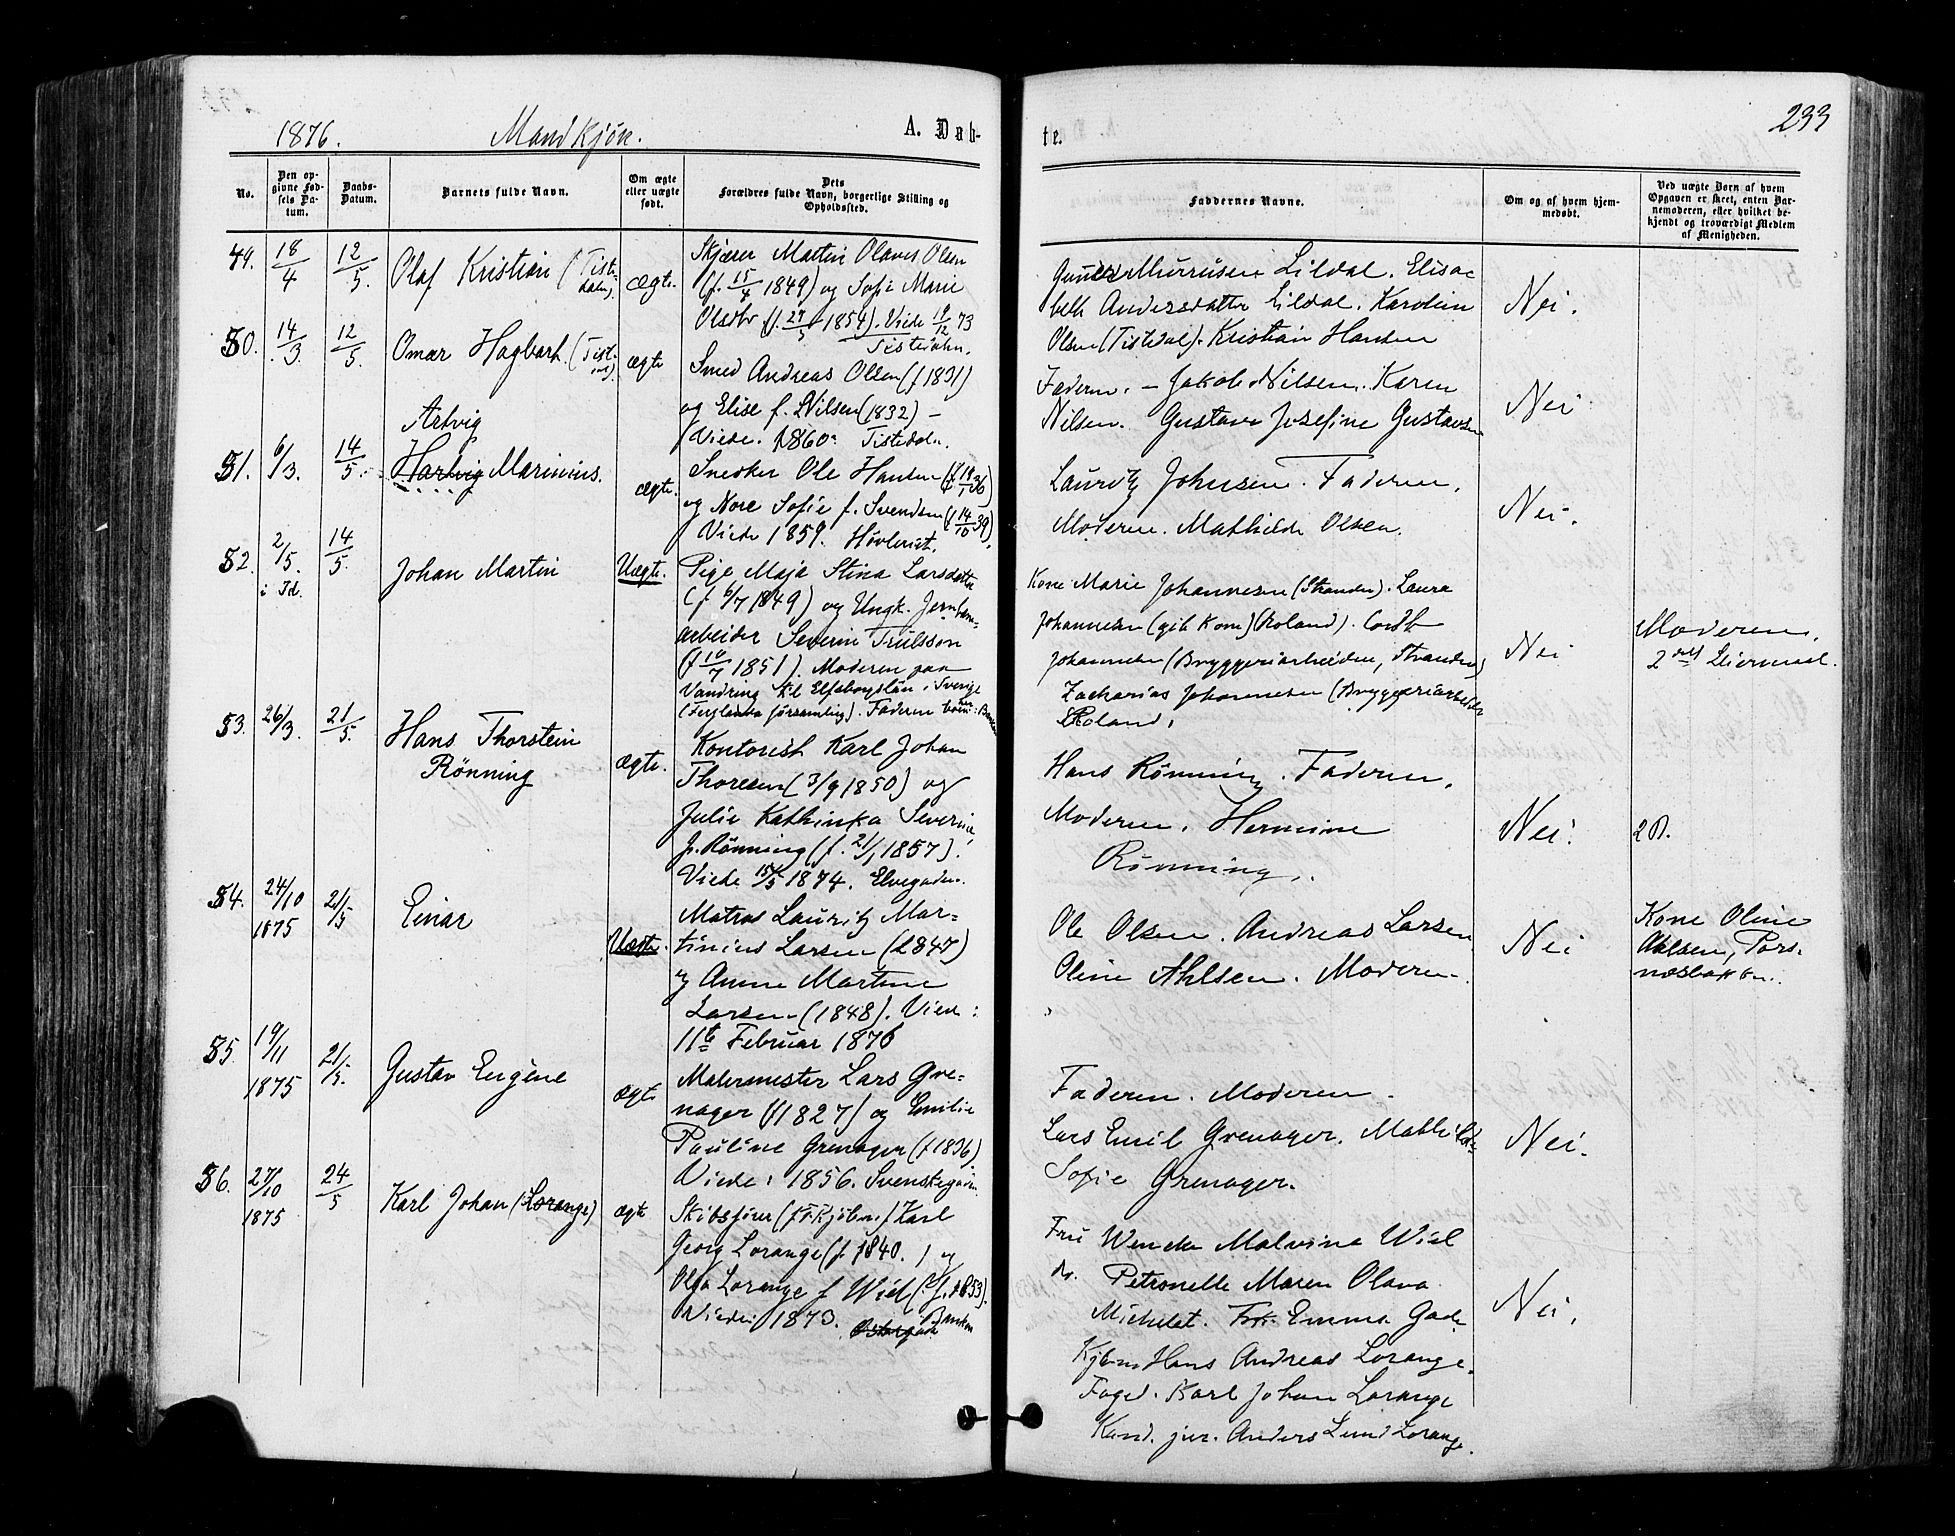 1876.
Mandkjøn.
A. Dab-
te.
233
No.
Den op-
givne Fød-
sels Da-
tum.
Daabs-
Datum.
Barnets fulde Navn.
Om ægte
eller uægte
født.
Dets
Forældres fulde Navn, borgerlige Stilling og
Opholdssted.
Faddernes Navne.
Om og af hvem hjem-
medøbt.
Ved uægte Børn af hvem
Opgaven er skeet, enten Bar-
nemoderen, eller hvilket be-
kjendt og troværdigt Medlem
af Menigheden.
49.
18/4
12/5.
Olaf Kristian (Tiste-
dalen).
ægte.
Skjærer Martin Olaves Olsen
(f. 15/4 1849) og Sofie Marie
Olsdtr (f. 1854). Viede 19/12 73
Tistedalen.
Lildal. Elisa-
beth Andersdatter Lildal. Karoline
Olsen (Tistedal). Kristian Hansen
Nei.
50.
14/3.
12/5.
Omar Hagbart.
ægte
Smed Andreas Olsen (f 1831)
og Elise f. Nilsen (1832) –
Viede. 1860. Tistedalen.
Faderen. – Jakob Nilsen. Karen
Nilsen. Gustava Josefine Gustavsen
Nei
51.
6/3.
14/5.
Artvig
Hartvig Marinius.
ægte.
Snedker Ole Hansen (f 36)
og Nore Sofie f. Svendsen (f 14/10 39).
Viede 1859. Hovleriet.
Lauritz Johnsen. Faderen.
Moderen. Mathilde Olsen.
Nei.
52.
2/5.
i Id.
14/5.
Johan Martin
Uægte.
Pige Maja Stina Larsdatter
(f 6/7 1849) og Ungk. Jernbane-
arbeider Severin Trulsson
(f 10/7 1851). Moderen paa
Vandring til Elfsborgslän i Sverige
(Ferglanda församling). Faderen
Kone Marie Johannesen (Stranden). Laura
Johannesen (gift Kone) (Roland).
Johannesen (Bryggeriarbeider, Stranden)
Zacharias Johannesen (Bryggeriarbeider
Roland.
Nei
Moderen.
2det Leiermaal.
53.
26/3.
21/5.
Hans Thorstein
Rönning
ægte.
Kontorist Karl Johan
Thoresen (3/9 1850) og
Julie Kathinka Severine
f. Rönning (f. 21/1 1857).
Viede 15/5 1874. Elvegaden.
Hans Rönning. Faderen.
Moderen. Hermine
Rönning.
Nei.
54.
24/10
1875
21/5
Einar
Uægte.
Matros Lauritz Mar-
tinius Larsen (1847)
og Anne Martine
Larsen (1848). Viede:
11te Februar 1876
Ole Olsen. Andreas Larsen
Oline Ahlsen. Moderen.
Nei
Kone Oline
Ahlsen, Pors-
nesbakken.
55.
19/11
1875
21/5.
Gustav Eugène
ægte
Malermester Lars Gre-
nager (f 1827) og Emilie
Pauline Grenager (f 1836).
Viede: 1856. Svenskegaden.
Faderen. Moderen.
Lars Emil Grenager. Mathilde
Sofie Grenager.
Nei.
56.
27/10
1875
24/5
Karl Johan (Lorange)
ægte
Skibsfører (f. Kjøbm.) Karl
Georg Lorange (f. 1840.) og
Olga Lorange f Wiel (f. 1853).
Viede: 1873. Banken
Fru Wencke Malvina Wiel
do. Petronelle Maren Olava
Michelet. Frk. Emma Gade
Kjøbm Hans Andreas Lorange.
Foged. Karl Johan Lorange
Kand. jur. Anders Lund Lorange.
Nei.